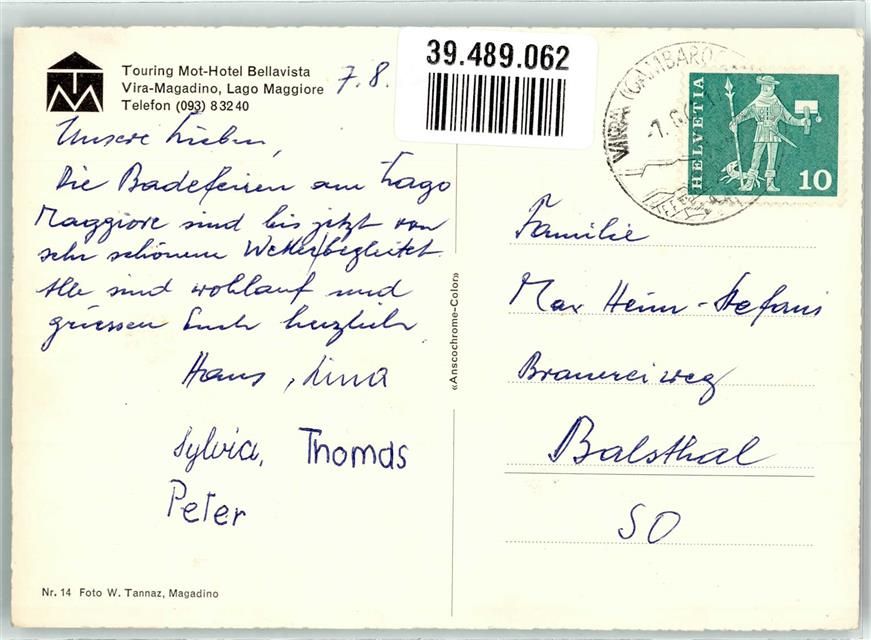 Touring Mot-Hotel Bellavista
Vira-Magadino, Lago Maggiore
Telefon (093) 8 32 40
7. 8.
39.489.062
VIRA (GAMBAROGNO)
HELVETIA
10
Unsere Lieben,
Die Badeferien am Lago
Maggiore sind bis jetzt von
sehr schönem Wetter begleitet.
Alle sind wohlauf und
grüssen Euch herzlich
Hans, Lina
Sylvia, Thomas
Peter
«Anscochrome-Color»
Familie
Max Heim-Stefani
Brauereiweg
Balsthal
SO
Nr. 14 Foto W. Tannaz, Magadino